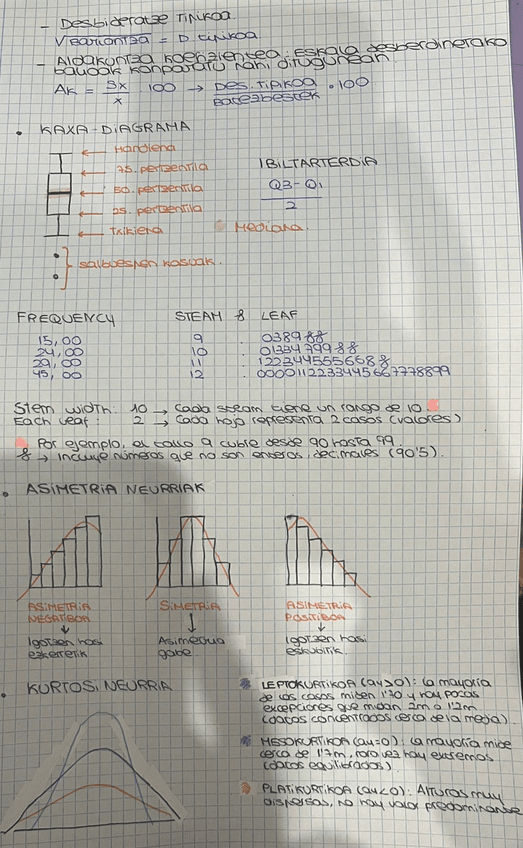 - Desbideratze Tipikoa
√Bariantza = D. tipikoa
- Aldakuntza koefizientea: Eskala desberdinetako
baudak konparatu nahi ditugunean
AK = Sx / x̄ · 100 → Des. Tipikoa / Batezbestek · 100
• KAXA-DIAGRAMA
← Handiena
← 75. pertzentila
← 50. pertzentila
← 25. pertzentila
← Txikiena
} salbuespen kasuak.
IBILTARTERDIA
Q3-Q1
2
Mediana.
FREQUENCY STEAM & LEAF
15,00 9 . 0389&&
24,00 10 . 01334799&&
29,00 11 . 1223445555668&
45,00 12 . 0000112233445667778899
Stem width: 10 → Cada steam tiene un rango de 10.
Each leaf: 2 → Cada hoja representa 2 casos (valores)
Por ejemplo, el tallo 9 cubre desde 90 hasta 99.
& → Incluye números que no son enteros, decimales (90'5).
• ASIMETRIA NEURRIAK
ASIMETRIA
NEGATIBOA
↓
Igotzen hasi
ezkerretik
SIMETRIA
↓
Asimetria
gabe
ASIMETRIA
POSITIBOA
↓
Igotzen hasi
eskubitik.
• KURTOSI NEURRIA
* LEPTOKURTIKOA (au>0): La mayoría
de los casos miden 1'70 y hay pocas
excepciones que midan 2m o 1'2m
(datos concentrados cerca de la media).
* MESOKURTIKOA (au=0): La mayoría mide
cerca de 1'7m, hay extremos
(datos equilibrados)
PLATIKURTIKOA (au<0): Alturas muy
dispersas, no hay valor predominante